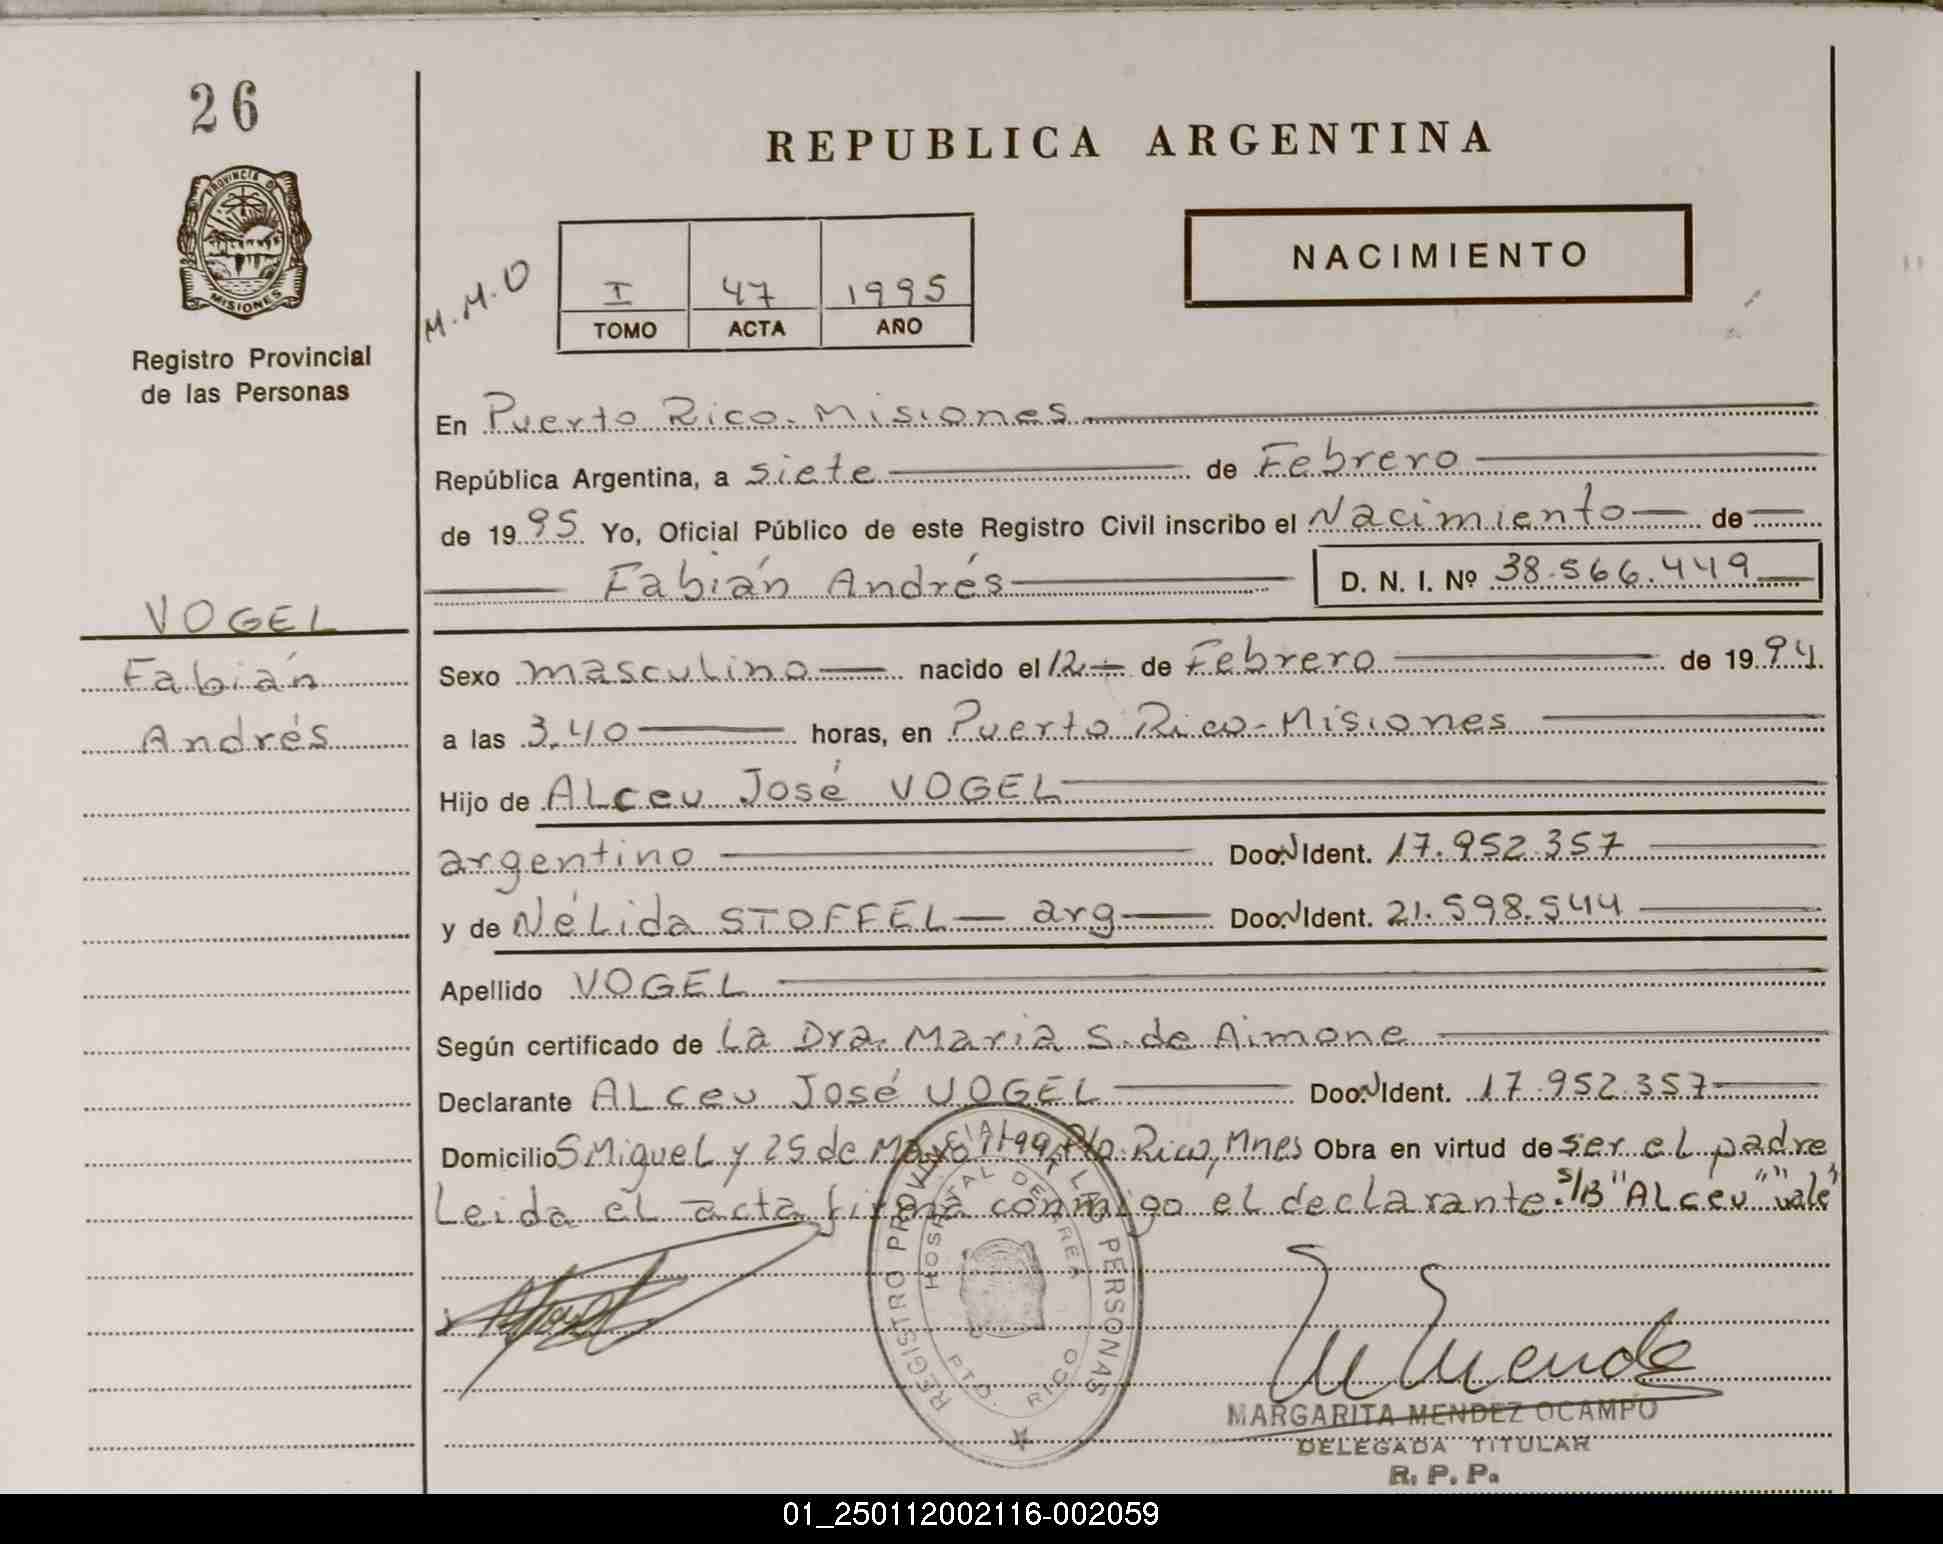 26
PROVINCIA DE
MISIONES
Registro Provincial
de las Personas
VOGEL
Fabián
Andrés
REPUBLICA ARGENTINA
M.M.O
I 47 1995
TOMO ACTA AÑO
NACIMIENTO
En Puerto Rico-Misiones
República Argentina, a siete de Febrero
de 1995 Yo, Oficial Público de este Registro Civil inscribo el Nacimiento de
Fabián Andrés D. N. I. Nº 38.566.449
Sexo masculino nacido el 12 de Febrero de 1994
a las 3,40 horas, en Puerto Rico-Misiones
Hijo de ALceu José VOGEL
argentino Doc. Ident. 17.952.357
y de NéLida STOFFEL arg Doc. Ident. 21.598.544
Apellido VOGEL
Según certificado de La Dra. Maria S. de Aimone
Declarante ALceu José VOGEL Doc. Ident. 17.952.357
Domicilio S MigueL y 25 de Mayo Pto. Rico, Mnes Obra en virtud de ser eL padre
Leida eL acta firma conmigo el declarante. S/B "ALceu" "vale"
REGISTRO PROVINCIAL DE LAS PERSONAS
HOSPITAL DE AREA
PTO. RICO
MARGARITA MENDEZ OCAMPO
DELEGADA TITULAR
R. P. P.
01_250112002116-002059